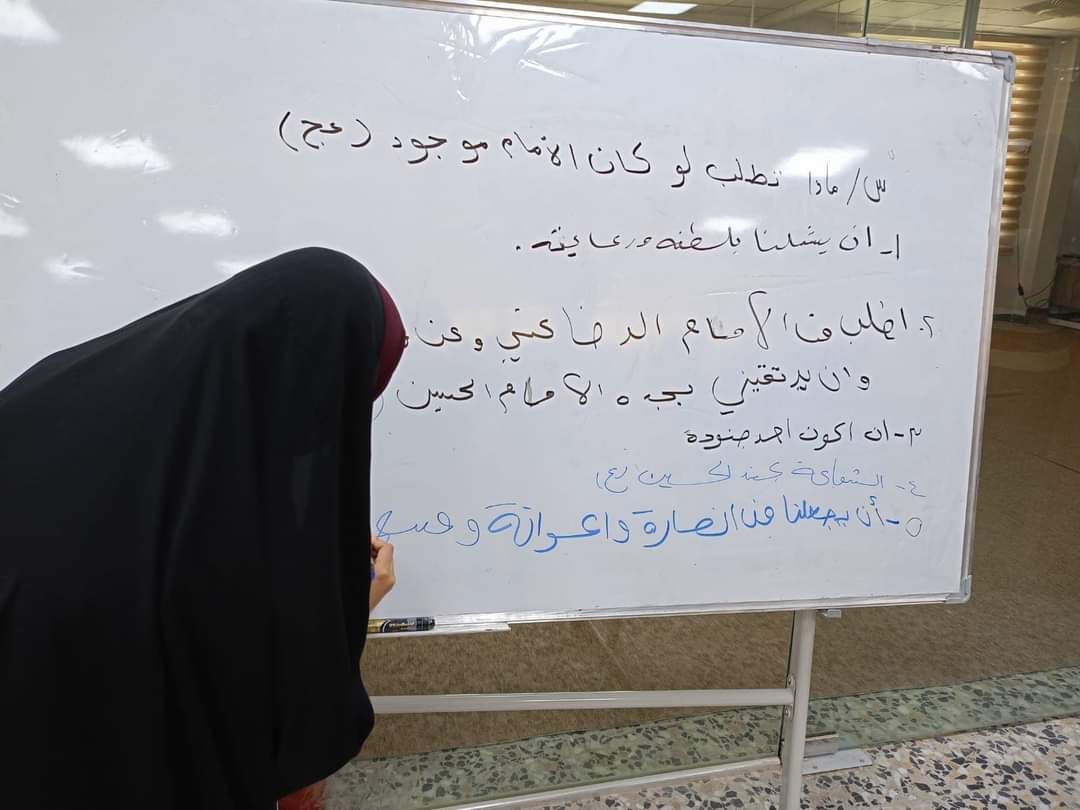 س/ ماذا تطلب لو كان الامام موجود (عج)
١- ان يشملنا بلطفه ورعايته.
٢. اطلب من الامام الرضا عني وعن
وان يرتقيني بجده الامام الحسين (
٣- ان اكون احد جنودة
٤- الشفاعة عند الحسين (ع)
٥- أن يجعلنا من انصارة واعوانة و